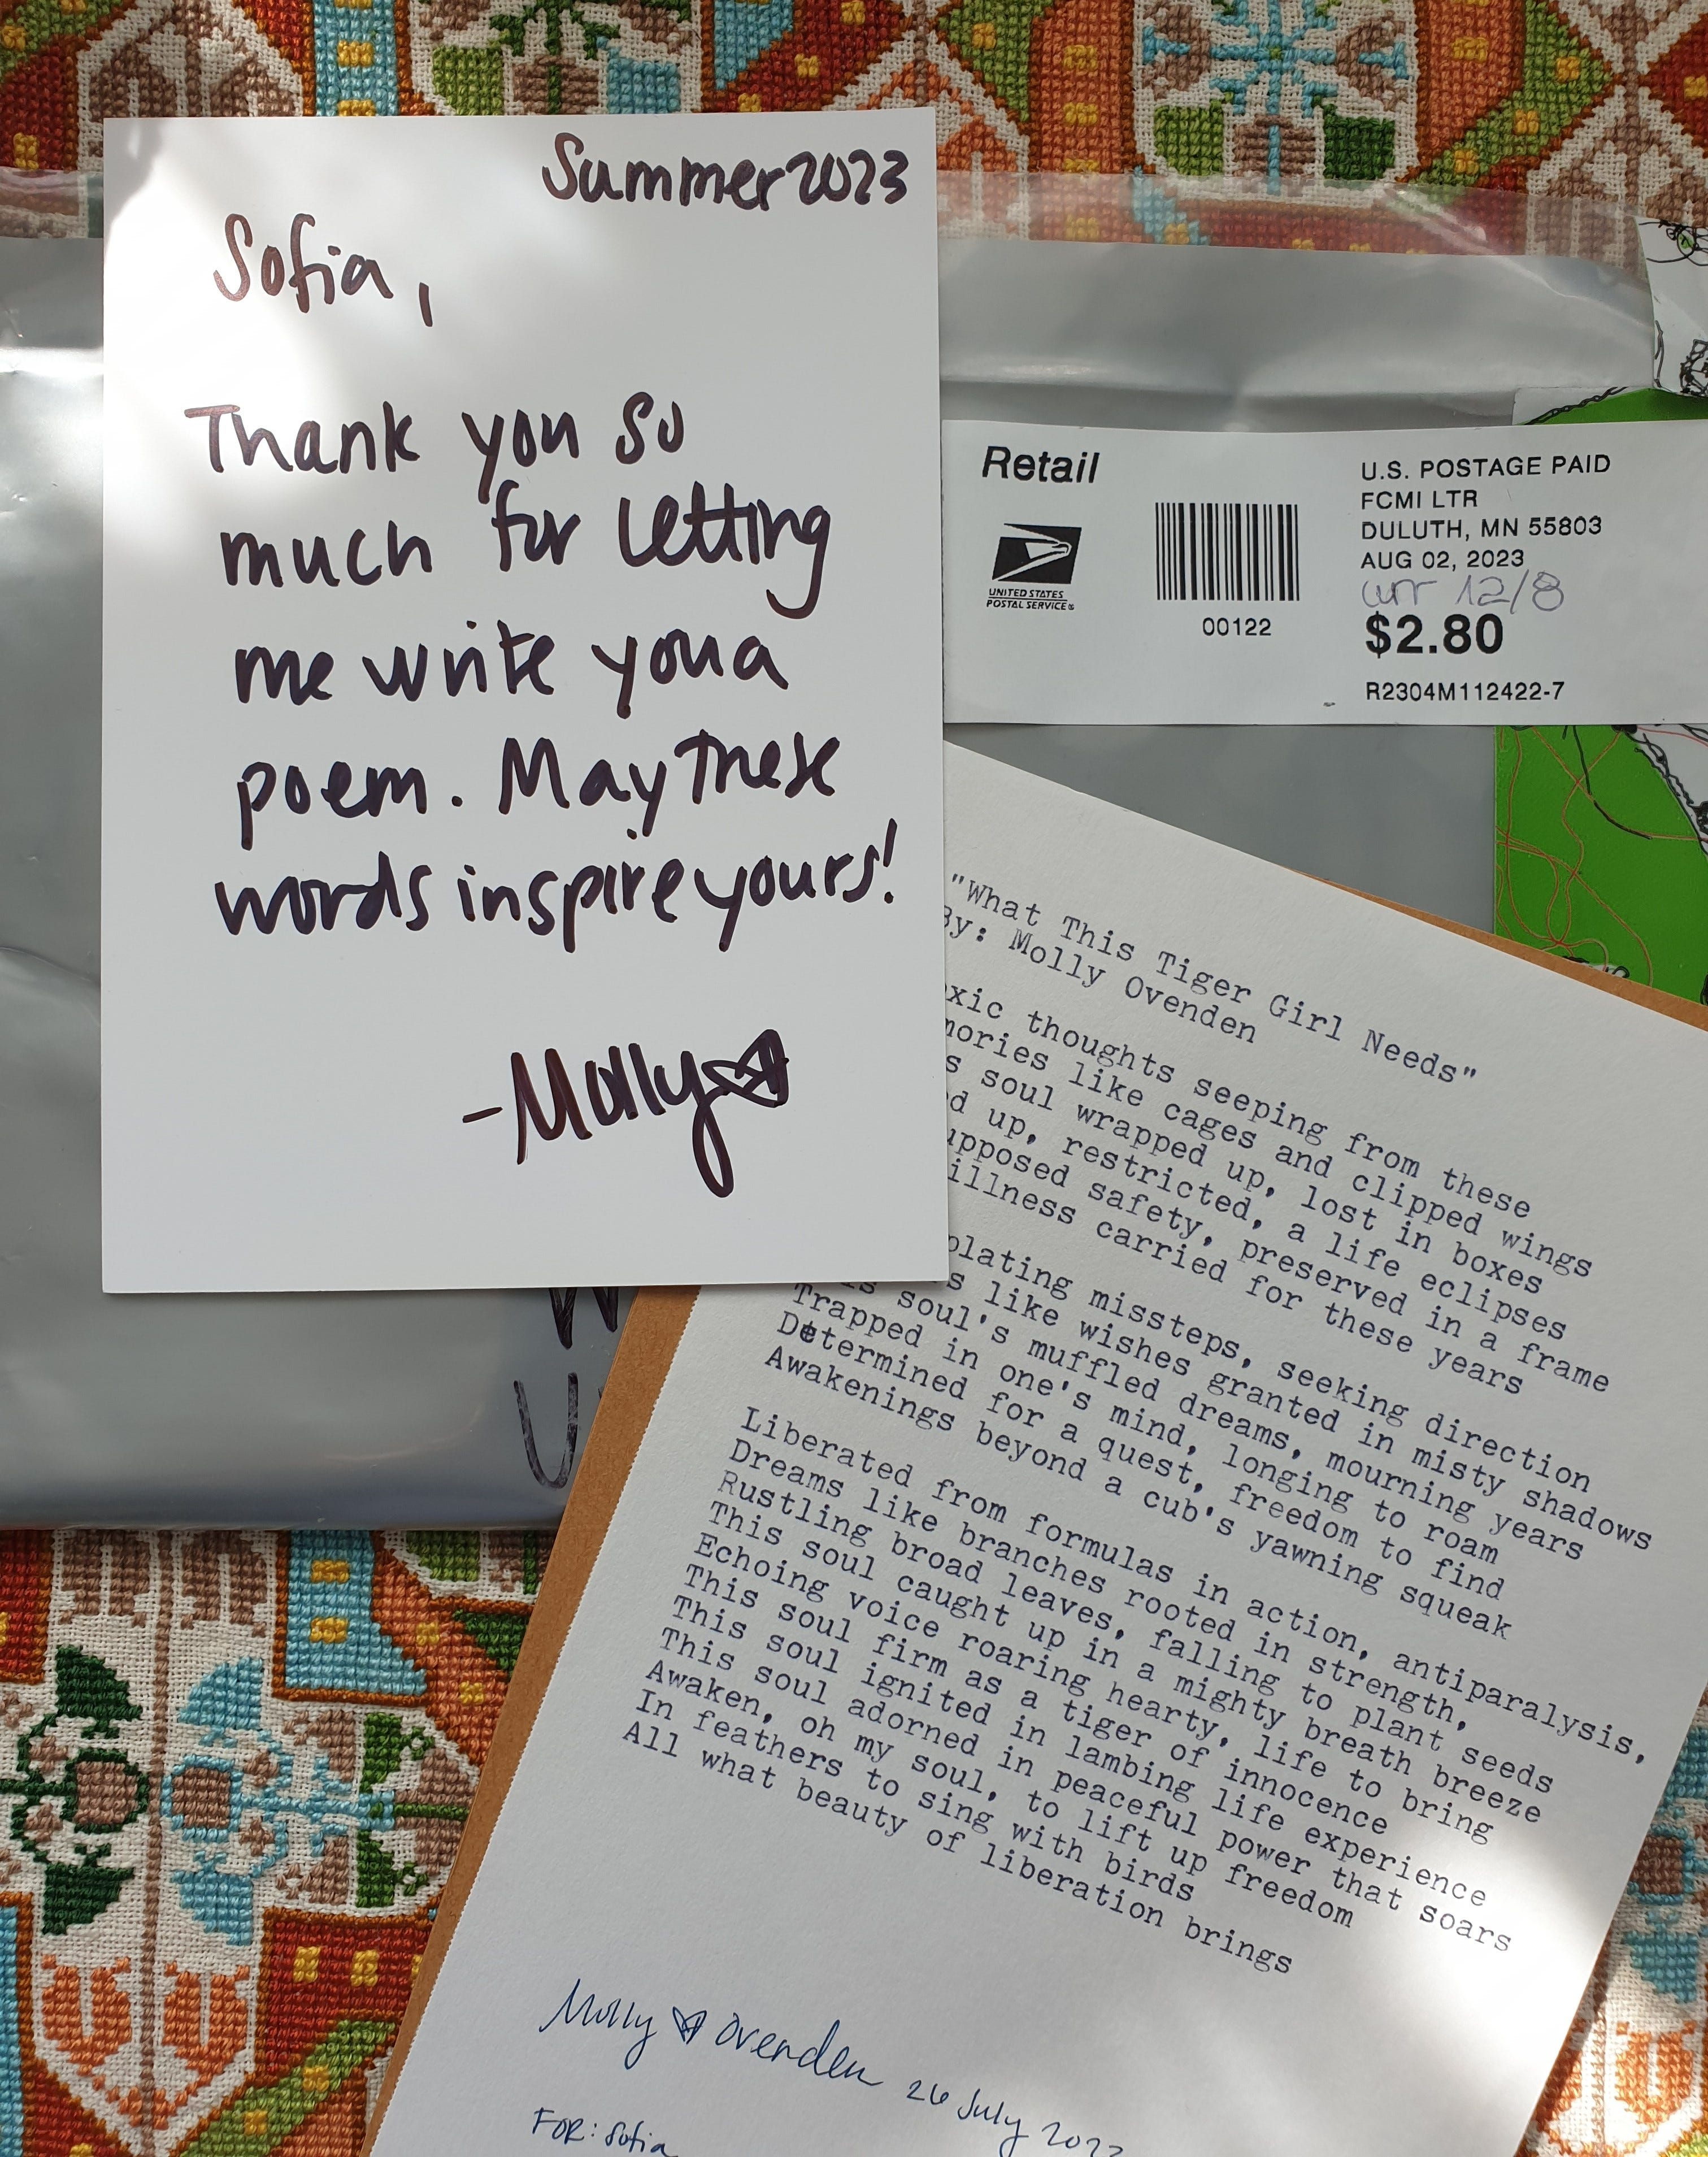 Summer 2023
Sofia,
Thank you so
much for letting
me write you a
poem. May these
words inspire yours!
-Molly
Retail
UNITED STATES
POSTAL SERVICE
00122
U.S. POSTAGE PAID
FCMI LTR
DULUTH, MN 55803
AUG 02, 2023
12/8
$2.80
R2304M112422-7
"What This Tiger Girl Needs"
By: Molly Ovenden
thoughts seeping from these
like cages and clipped wings
soul wrapped up, lost in boxes
up, restricted, a life eclipses
safety, preserved in a frame
illness carried for these years
missteps, seeking direction
like wishes granted in misty shadows
soul's muffled dreams, mourning years
Trapped in one's mind, longing to roam
Determined for a quest, freedom to find
Awakenings beyond a cub's yawning squeak
Liberated from formulas in action, antiparalysis,
Dreams like branches rooted in strength,
Rustling broad leaves, falling to plant seeds
This soul caught up in a mighty breath breeze
Echoing voice roaring hearty, life to bring
This soul firm as a tiger of innocence
This soul ignited in lambing life experience
This soul adorned in peaceful power that soars
Awaken, oh my soul, to lift up freedom
In feathers to sing with birds
All what beauty of liberation brings
Molly Ovenden 26 July 2023
FOR: Sofia